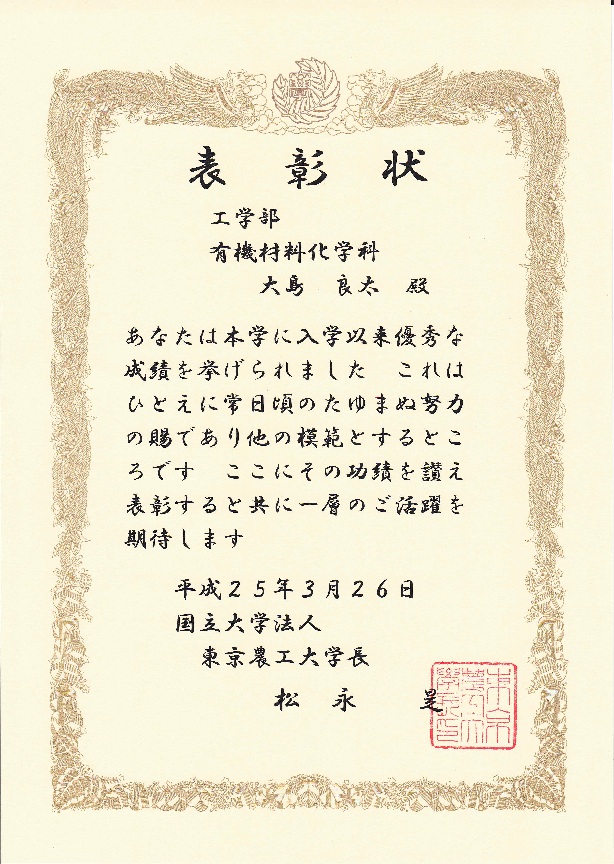 表彰状
工学部
有機材料化学科
大島 良太 殿
あなたは本学に入学以来優秀な
成績を挙げられました これは
ひとえに常日頃のたゆまぬ努力
の賜であり他の模範とするとこ
ろです ここにその功績を讃え
表彰すると共に一層のご活躍を
期待します
平成25年3月26日
国立大学法人
東京農工大学長
松永 是
東京
農工大
學長印